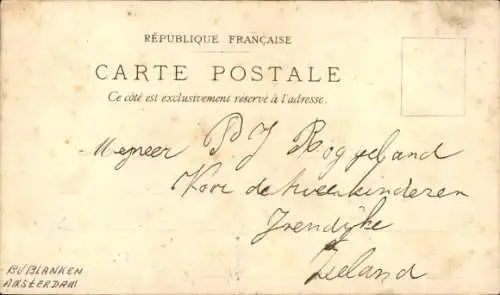 RÉPUBLIQUE FRANÇAISE
CARTE POSTALE
Ce côté est exclusivement réservé à l'adresse.
Mejneer P J Roggeband
Voor de tweekinderen
Irendijke
Zeeland
BIJ BLANKEN
AMSTERDAM